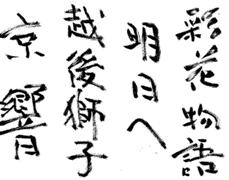 彩花物語
明日へ
越後獅子
京響